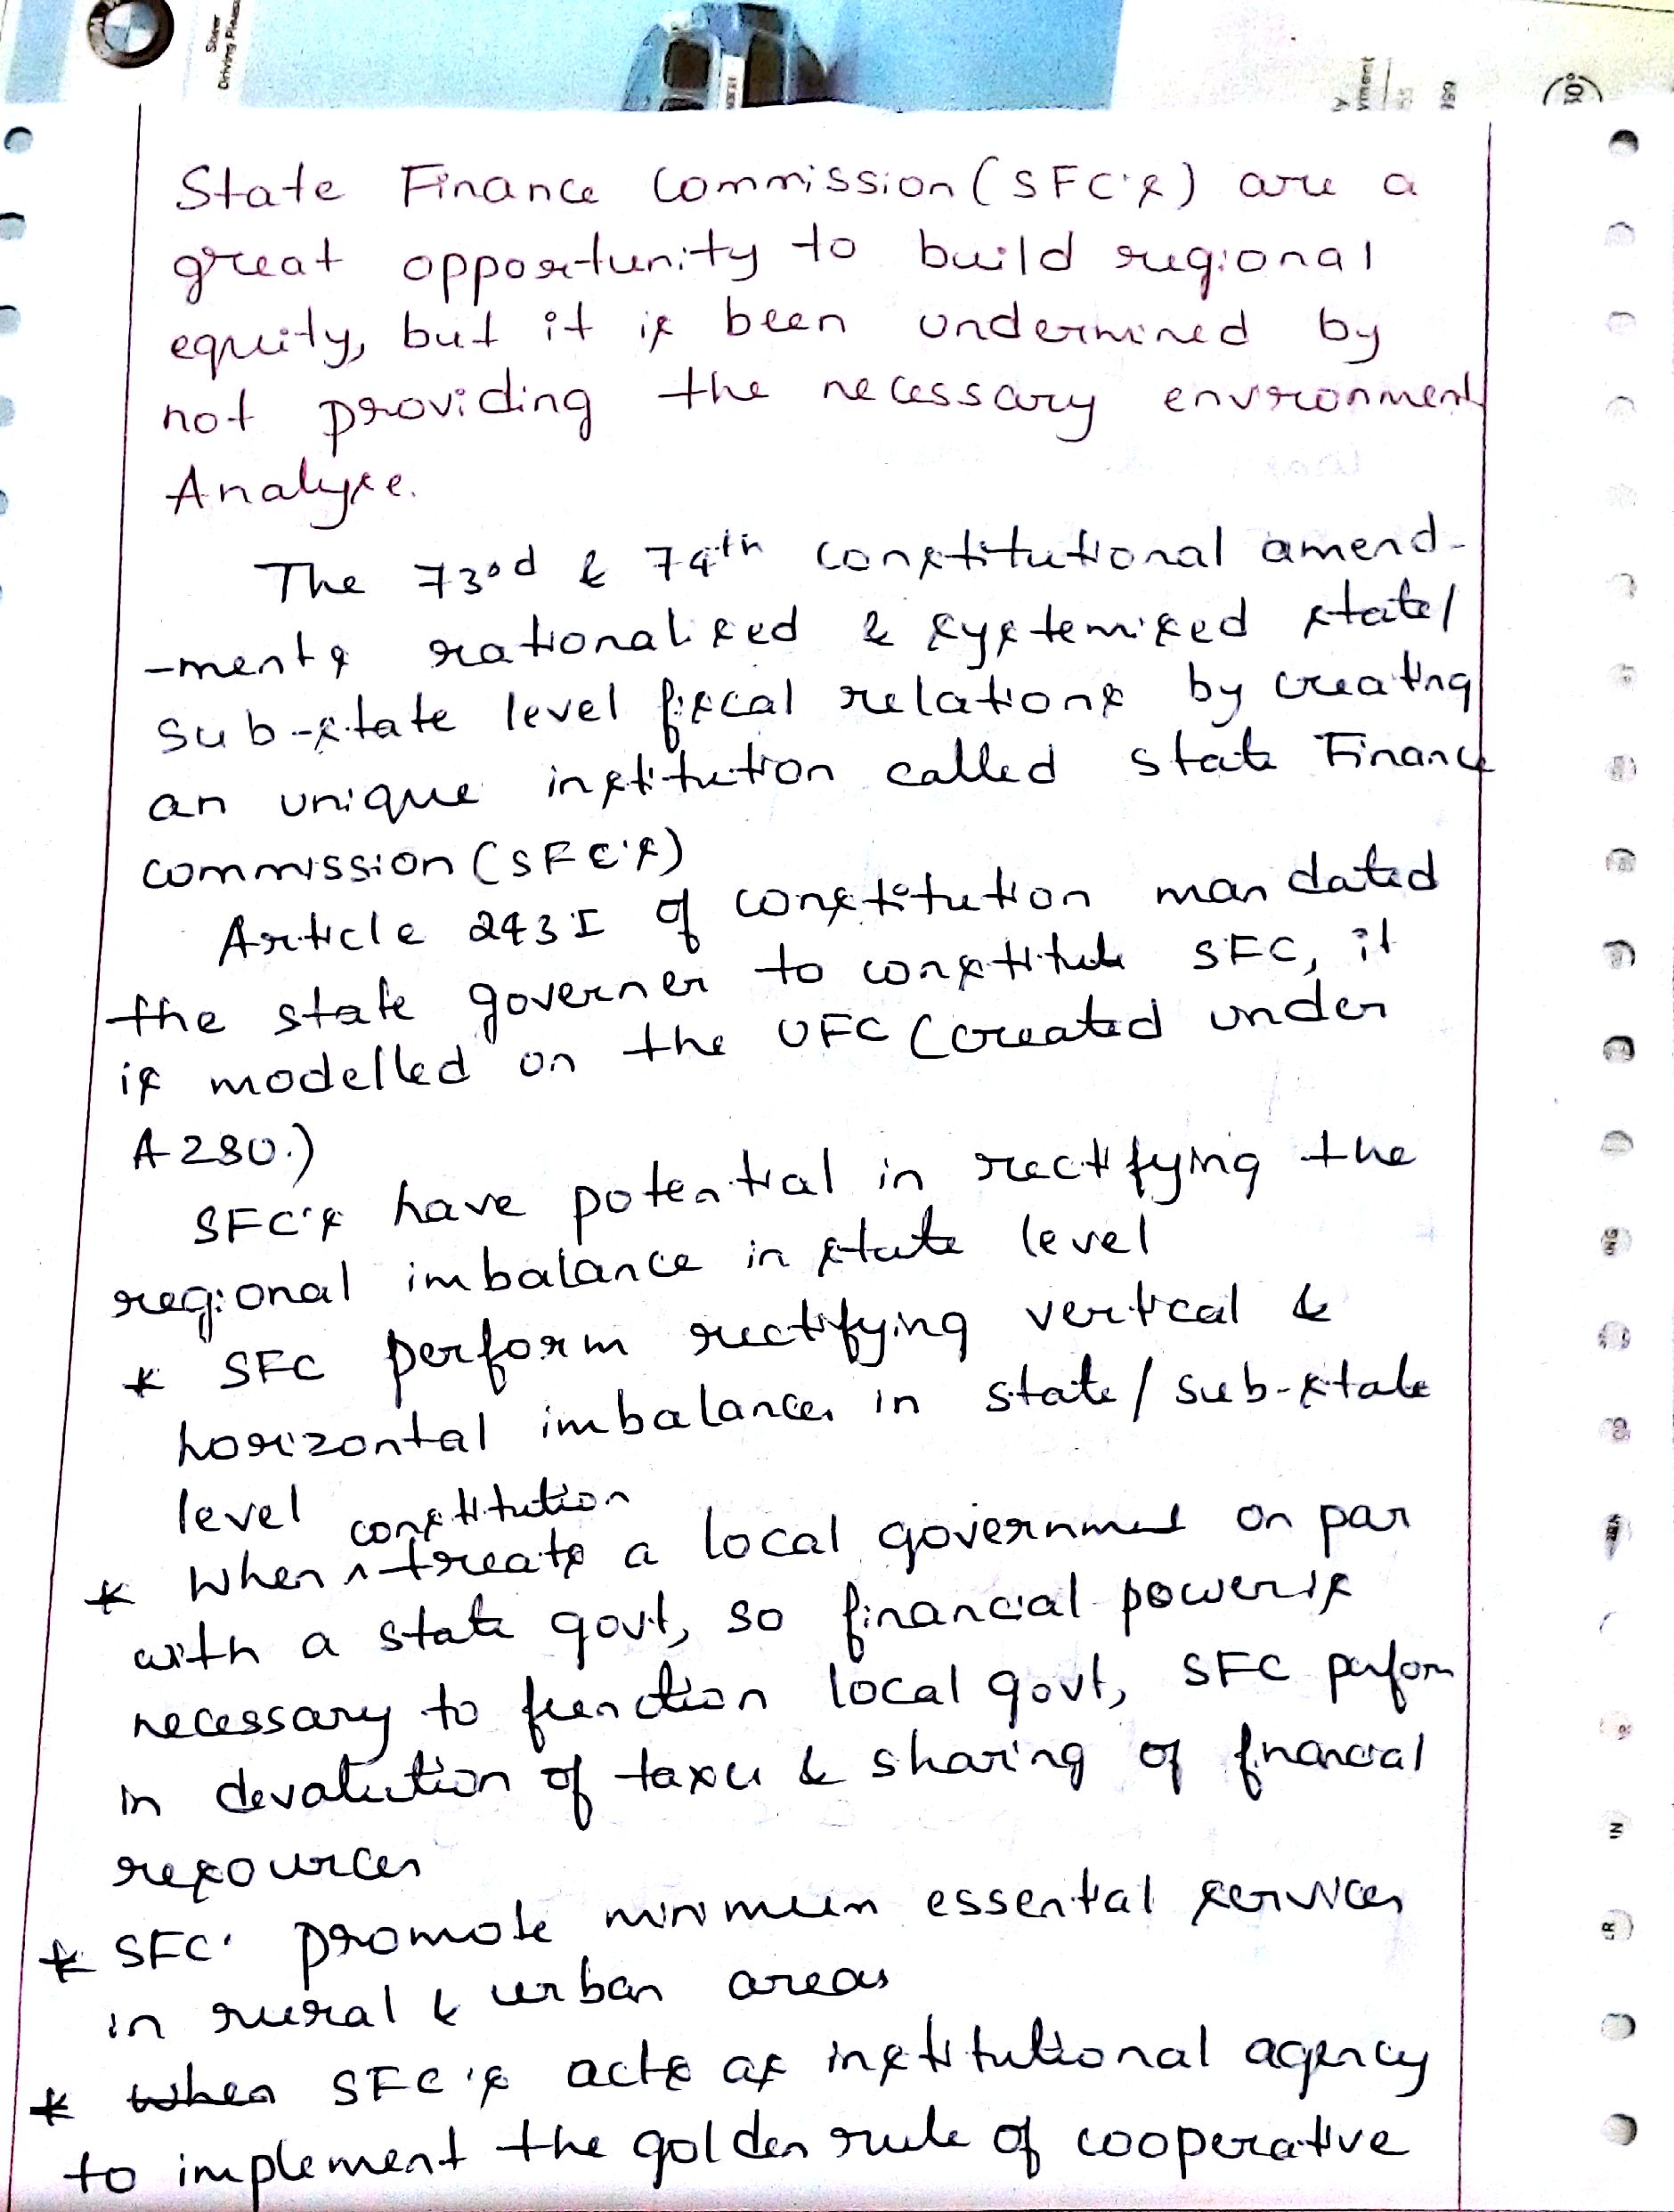 Sheer
Driving Pleasure
State Finance Commission (SFC's) are a
great opportunity to build regional
equity, but it is been undermined by
not providing the necessary envronment
Analyse.
The 73rd & 74th constitutional amend-
-ments rationalised & systemised state/
sub-state level fiscal relations by creating
an unique institution called state Finance
commission (SFC's)
Article 243I of constitution mandated
the state governer to constitute SFC, it
is modelled on the UFC (created under
A 280.)
SFC's have potential in rectifying the
regional imbalance in state level
* SFC perform rectifying vertical &
horizontal imbalances in state/sub-state
level
constitution
* When ^ treats a local government on par
with a state govt, so financial power is
necessary to function local govt, SFC perform
in devalution of taxes & sharing of financial
resources
* SFC' promote minimum essential services
in rural & urban areas
* when SFC's acts as institutional agency
to implement the golden rule of cooperative